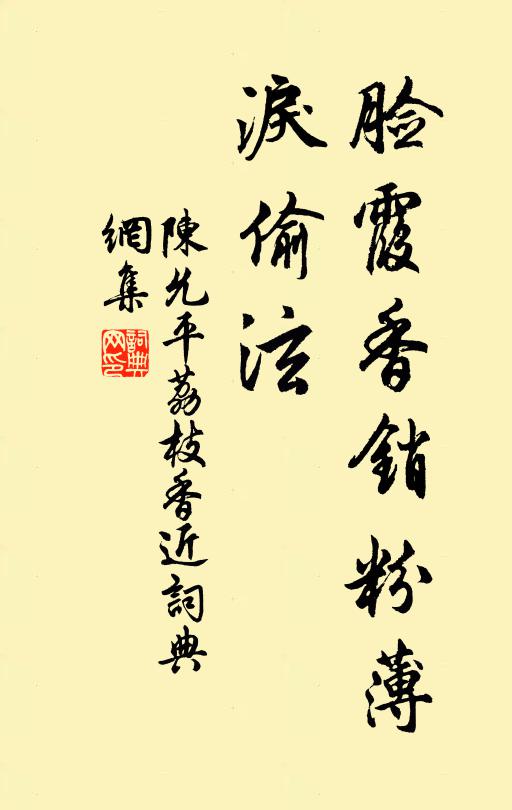 脸霞香銷粉薄
淚偷泫
陳允平荔枝香近詞典
網集
詞典
网印